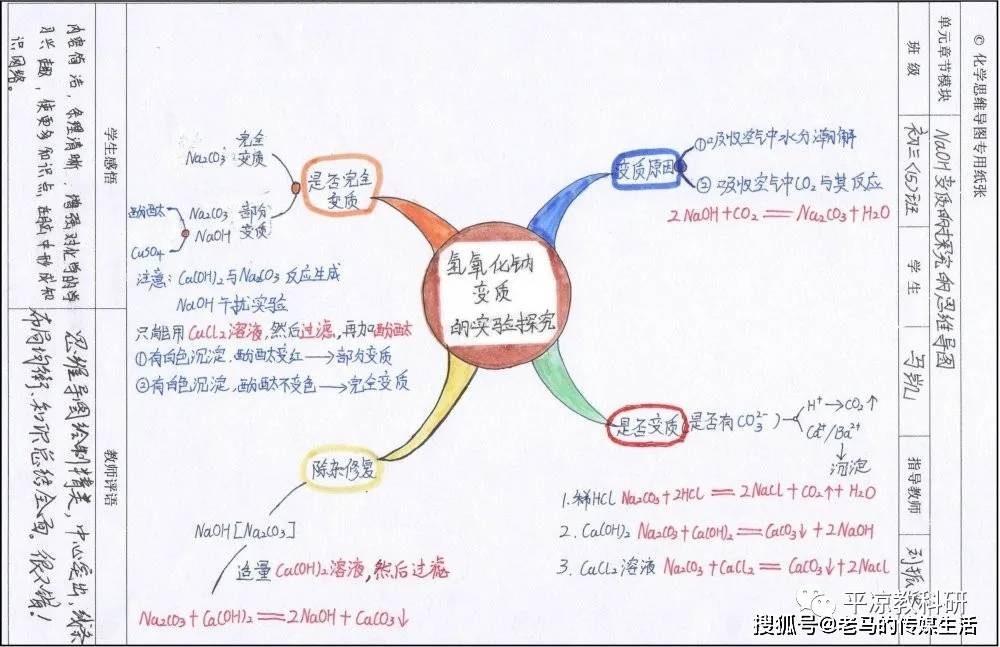 © 化学思维导图专用纸张
单元章节模块
NaOH变质的探究的思维导图
班级
初三(15)班
学生
指导教师
氢氧化钠
变质
的实验探究
变质原因
①吸收空气中水分潮解
②吸收空气中CO₂与其反应
2NaOH+CO₂══Na₂CO₃+H₂O
是否变质
(是否有CO₃²⁻)
H⁺→CO₂↑
Ca²⁺/Ba²⁺
↓
沉淀
1.稀HCl Na₂CO₃+2HCl══2NaCl+CO₂↑+H₂O
2.Ca(OH)₂ Na₂CO₃+Ca(OH)₂══CaCO₃↓+2NaOH
3.CaCl₂溶液 Na₂CO₃+CaCl₂══CaCO₃↓+2NaCl
除杂修复
NaOH[Na₂CO₃]
适量Ca(OH)₂溶液,然后过滤
Na₂CO₃+Ca(OH)₂══2NaOH+CaCO₃↓
是否完全
变质
Na₂CO₃ 完全
变质
Na₂CO₃ 部分
NaOH 变质
酚酞
CuSO₄
注意:Ca(OH)₂与Na₂CO₃反应生成
NaOH干扰实验
只能用CaCl₂溶液,然后过滤,再加酚酞
①有白色沉淀,酚酞变红→部分变质
②有白色沉淀,酚酞不变色→完全变质
学生感悟
内容简洁,条理清晰,增强对化学的学
习兴趣,使更多知识点在脑中形成知
识网络。
教师评语
思维导图绘制精美,中心突出,线条
布局均衡、知识总结全面。很不错!
平凉教科研
搜狐号@老马的传媒生活